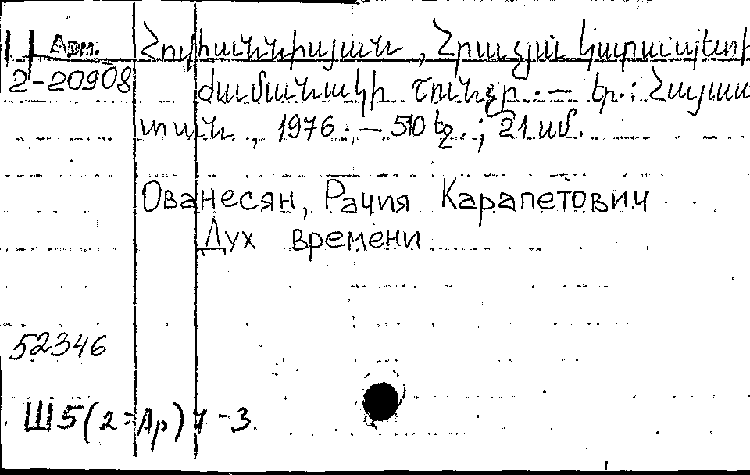 Арм. Հովհաննիսյան, Հրաչյա Կարապետի
2-20908 Ժամանակի շունչը. — Եր.: Հայաս
տան, 1976. — 510 էջ.; 21 սմ.
Ованесян, Рачия Карапетович
Дух времени
52346
Ш5(2=Ар)7-3